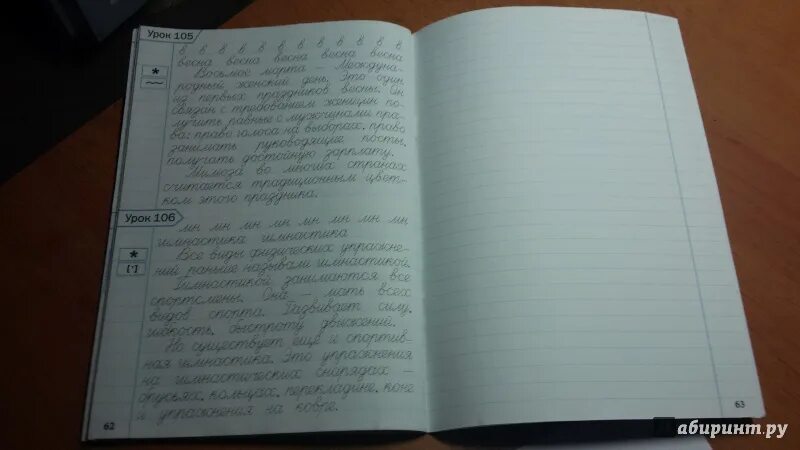 Урок 105
в в в в в в в в в в в
весна весна весна весна весна
Восьмое марта – Междуна-
родный женский день. Это один
из первых праздников весны. Он
связан с требованием женщин по-
лучить равные с мужчинами пра-
ва: право голоса на выборах, право
занимать руководящие посты,
получать достойную зарплату.
Мимоза во многих странах
считается традиционным цвет-
ком этого праздника.
Урок 106
мн мн мн мн мн мн мн мн
гимнастика гимнастика
Все виды физических упражне-
ний раньше называли гимнастикой.
Гимнастикой занимаются все
спортсмены. Она – мать всех
видов спорта. Развивает силу,
гибкость, быстроту движений.
Но существует ещё и спортив-
ная гимнастика. Это упражнения
на гимнастических снарядах –
брусьях, кольцах, перекладине, коне
и упражнения на ковре.
62
63
Лабиринт.ру